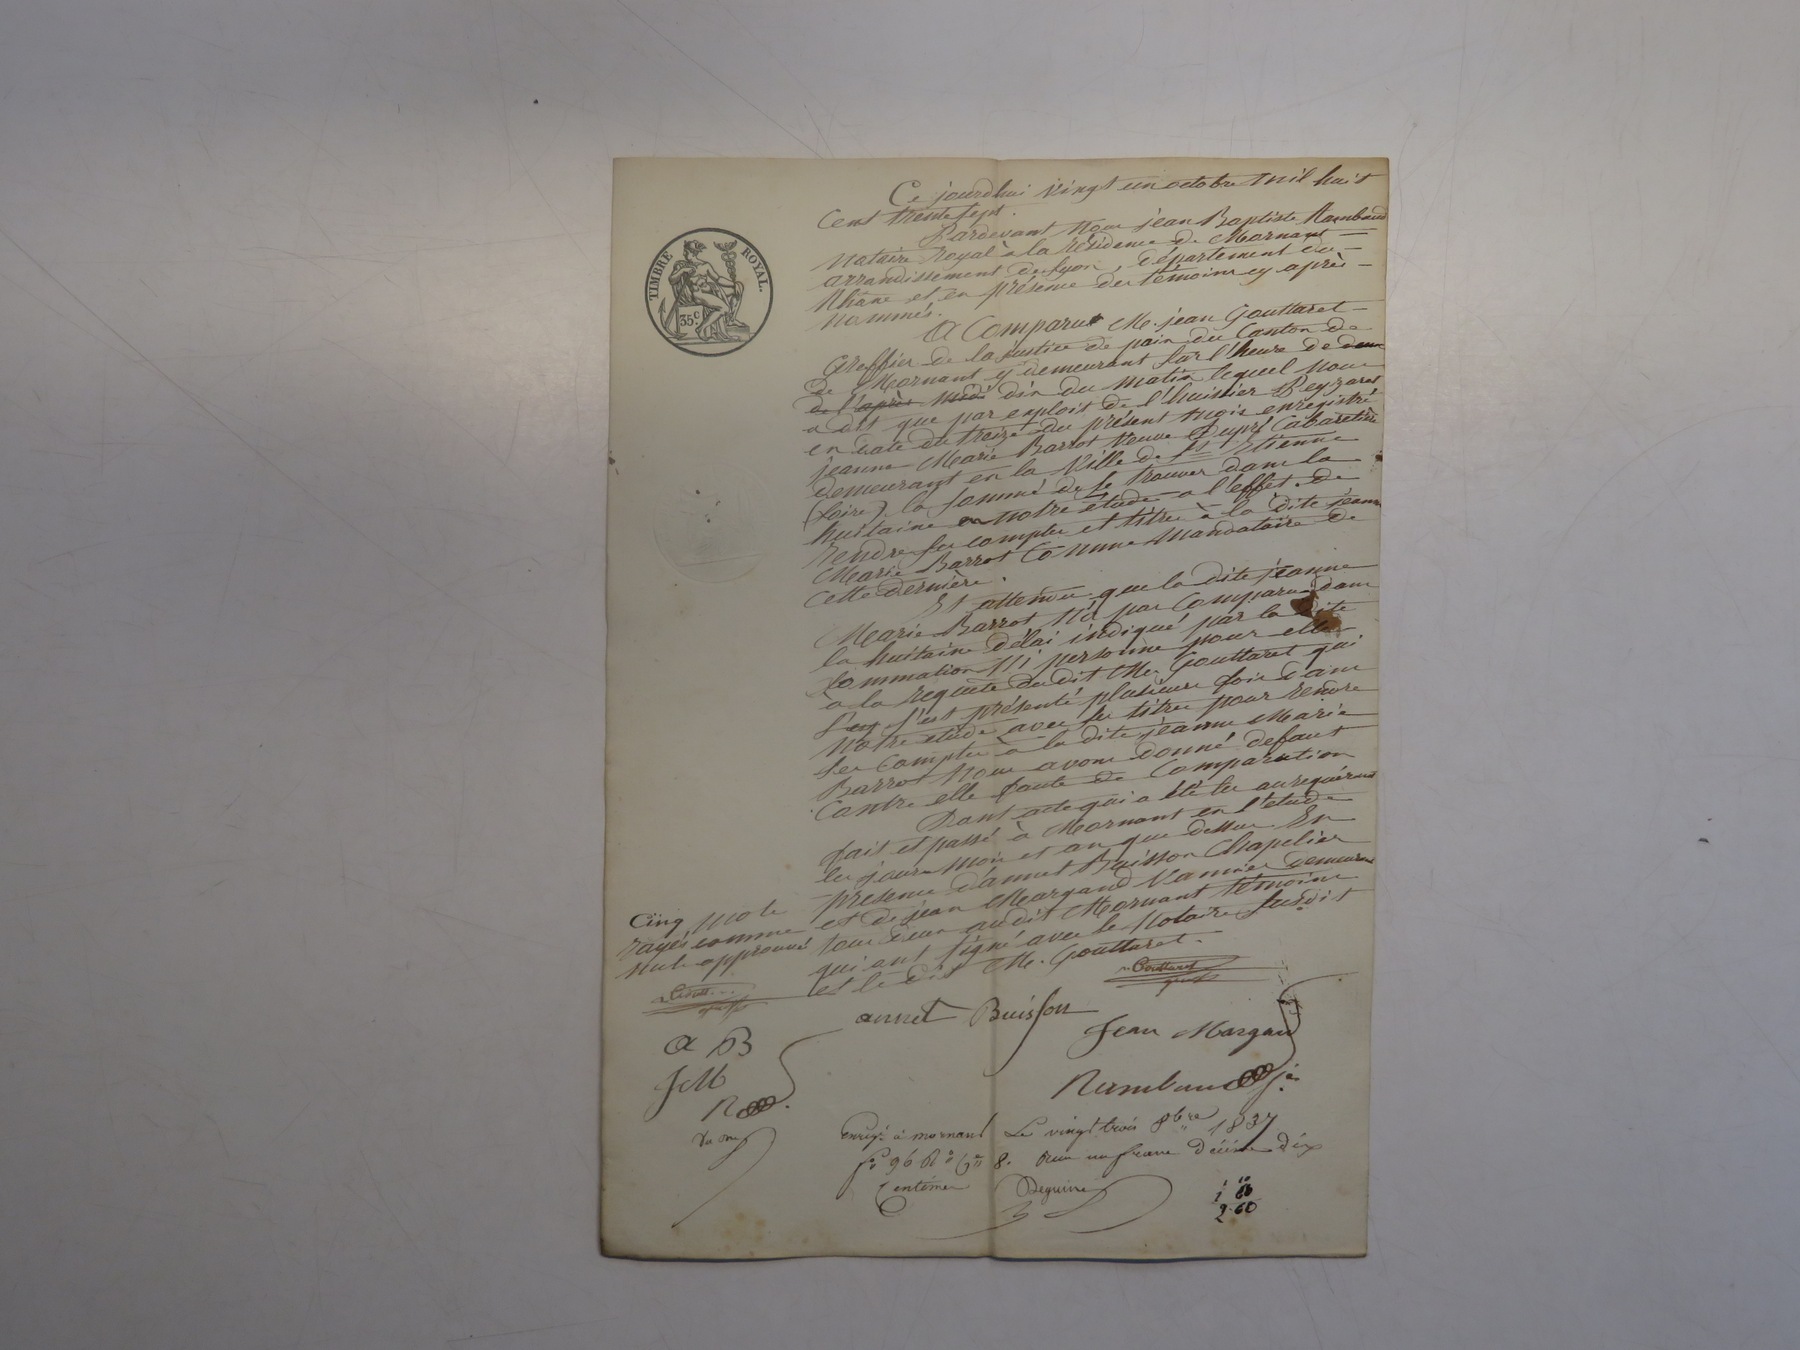 TIMBRE ROYAL.
35.c
Ce jourdhui vingt un octobre mil huit
cent trente sept.
Pardevant Nous jean Baptiste Rambaud
Notaire Royal à la résidence de Mornant
arrondissement de Lyon, département du
Rhône et en présence des témoins cy après
nommés.
A Comparu M. jean Gouttaret
Greffier de la justice de paix du Canton de
de Mornant y demeurant sur l'heure de deux
de l'après midi dix du matin lequel nous
a dit que par exploit de l'huissier Peyzaret
en date du treize du présent mois enregistré
jeanne Marie Barrot Veuve Dupré Cabaretière
demeurant en la Ville de St Etienne
(Loire) la sommé de se trouver dans la
huitaine en notre étude a l'effet de
rendre ses comptes et titres à la dite jeanne
Marie Barrot Comme Mandataire de
cette dernière.
Et attendu que la dite jeanne
Marie Barrot N'a pas Comparu dans
la huitaine délai indiqué par la dite
sommation ni personne pour elle
à la requête du dit Me Gouttaret qui
s'est présenté plusieurs fois dans
Notre étude avec ses titres pour rendre
ses Comptes à la dite jeanne Marie
Barrot Nous avons donné defaut
Contre elle faute de Comparution
Dont acte qui a été lu au requérant
fait et passé à Mornant en l'étude
les jours mois et an que dessus En
présence d'annet Buisson Chapelier
et de jean Margand Vannier demeurant
tous deux audit Mornant témoins
qui ont signé avec le Notaire susdit
et le dit M. Gouttaret.
Cinq mots
rayés comme
nuls approuvé
Goutt...
Gouttaret
annet Buisson
Jean Margand
A B
JM
R
Rambaud
Enregé à mornant Le vingt trois 8bre 1837
fo 96 Ro Ce 8. Reçu un franc décime dix
Centimes Deguine
1 10
2.60